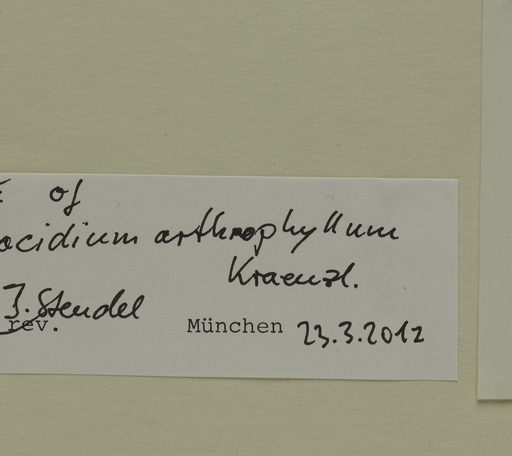 of
ocidium arthrophyllum
Kraenzl.
J. Stendel
rev. München 23.3.2012